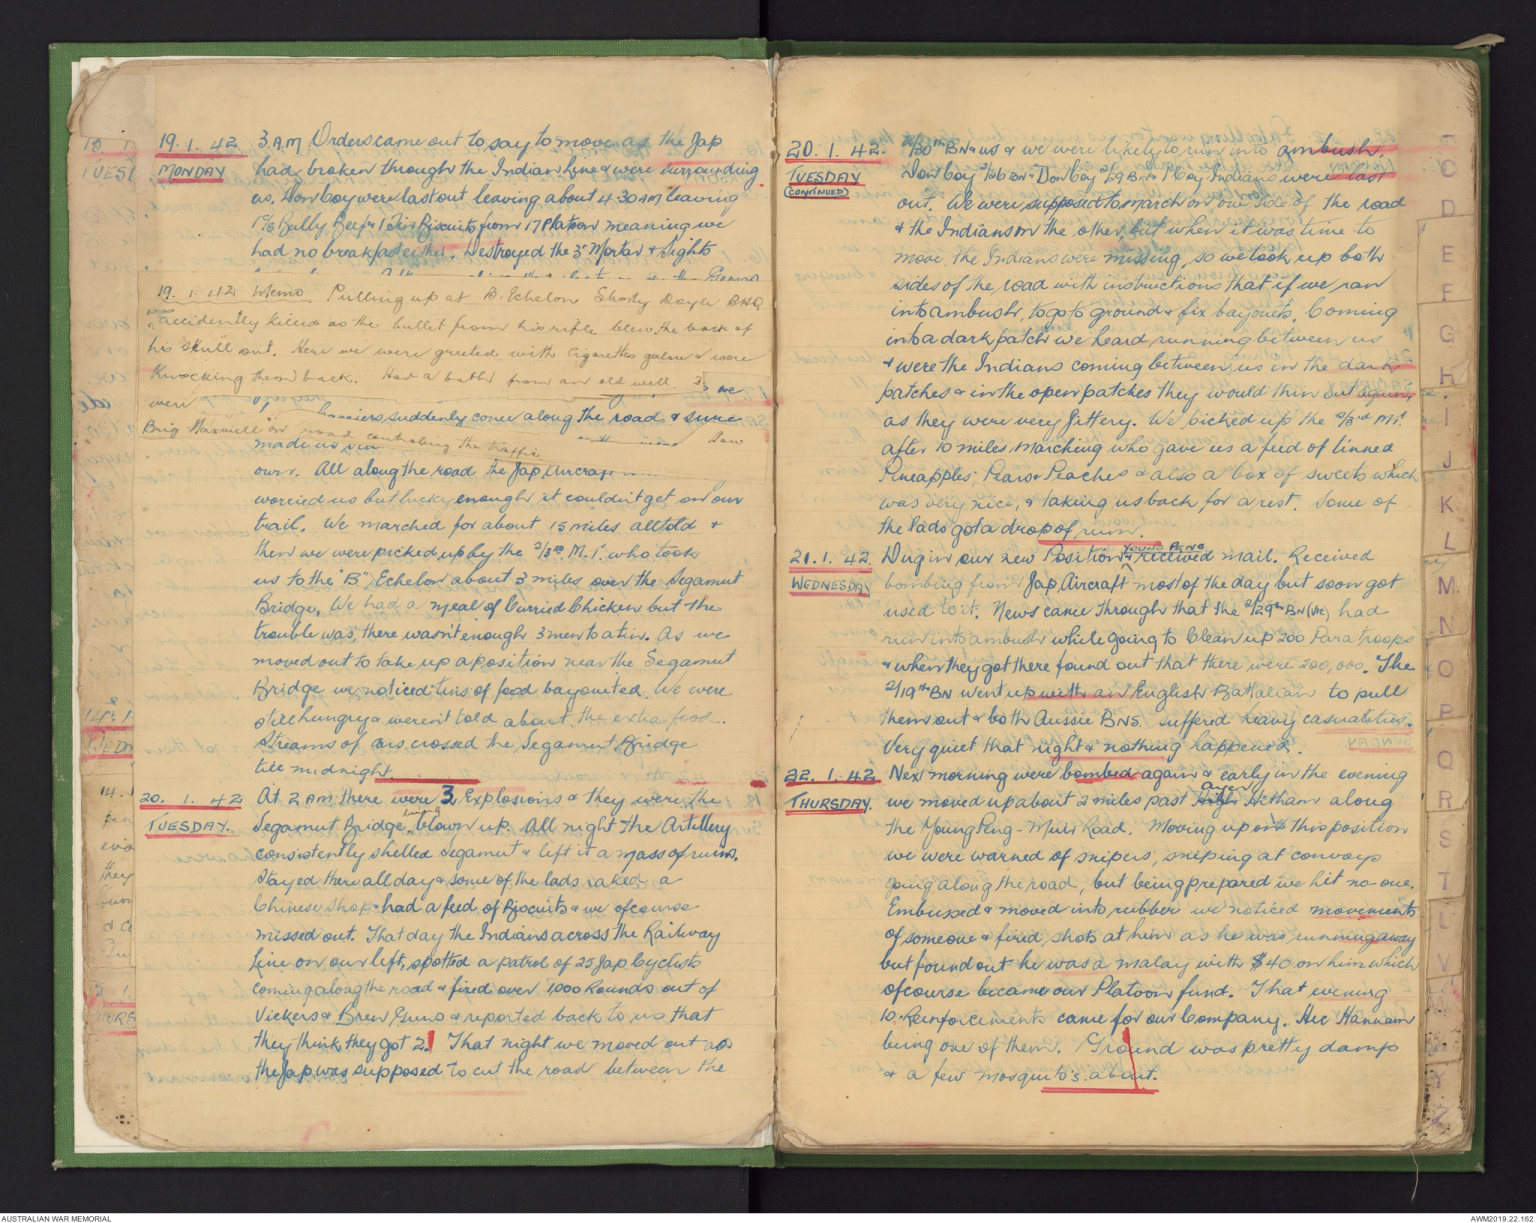 19. 1. 42
MONDAY
3 AM Orders came out to say to move as the Jap
had broken through the Indian Line & were surrounding
us. Don Coy were last out leaving about 4.30 AM leaving
Bully Beef & 1 Tin Biscuits from 17 Platoon meaning we
had no breakfast either. Destroyed the 3" Mortar & Sights
19. 1. 42 Memo. Pulling up at B. Echelon Shorty Doyle BHQ
was accidently killed as the bullet from his rifle blew the back of
his skull out. Here we were greeted with Cigarettes galore & were
Knocking them back. Had a bath from an old well. we
were carriers suddenly come along the road & sure
Brig Maxwell on road controlling the traffic
made us
own. All along the road the Jap Aircraft
worried us but lucky enough it couldn't get on our
trail. We marched for about 15 miles alltold &
then we were picked up by the 2/3rd M.T. who took
us to the "B" Echelon about 3 miles over the Segamut
Bridge. We had a meal of Curried Chicken but the
trouble was, there wasn't enough 3 men to a tin. As we
moved out to take up a position near the Segamut
Bridge we noticed tins of food bayoneted. We were
still hungry & weren't told about the extra food.
Streams of cars crossed the Segamut Bridge
till midnight.
20. 1. 42
TUESDAY.
At 2 AM there were 3 Explosions & they were the
Segamut Bridge being blown up. All night the Artillery
consistently shelled Segamut & left it a mass of ruins.
Stayed there all day & some of the lads raked a
Chinese Shop & had a feed of Biscuits & we ofcourse
missed out. That day the Indians across the Railway
Line on our left, spotted a patrol of 25 Jap Cyclists
coming along the road & fired over 1,000 Rounds out of
Vickers & Bren Guns & reported back to us that
they think they got 2! That night we moved out as
the Jap was supposed to cut the road between the
20. 1. 42.
TUESDAY
(CONTINUED)
2/30th BN & us & we were likely to run into ambush.
Don Coy 2/26 BN - Don Coy 2/29 BN & 1 Coy Indian were last
out. We were supposed to march on one side of the road
& the Indians on the other, but when it was time to
move, the Indians were missing, so we took up both
sides of the road with instructions that if we ran
into ambush, to go to ground & fix bayonets. Coming
into a dark patch we heard running between us
& were the Indians coming between us in the dark
patches & in the open patches they would thin out again,
as they were very jittery. We picked up the 2/3rd M.T.
after 10 miles marching who gave us a feed of tinned
Pineapples, Pears & Peaches & also a box of sweets which
was very nice, & taking us back for a rest. Some of
the lads got a drop of rum.
21. 1. 42.
WEDNESDAY
Dug in our new Position YOUNG PENG & received mail. Received
bombing from Jap Aircraft most of the day but soon got
used to it. News came through that the 2/29th BN (Vic) had
run into ambush while going to Clean up 200 Paratroops
& when they got there found out that there were 200,000. The
2/19th BN went up with an English Battalian to pull
them out & both Aussie BNS. suffered heavy casualities.
Very quiet that night & nothing happened.
22. 1. 42
THURSDAY.
Next morning were bombed again & early in the evening
we moved up about 2 miles past Ayer Hetham along
the Young Peng - Muir Road. Moving up on this position
we were warned of snipers, sniping at convoys
going along the road, but being prepared we hit no one.
Embussed & moved into rubber we noticed movements
of someone & fired shots at him as he was running away
but found out he was a malay with $40 on him which
ofcourse became our Platoon fund. That evening
10 Reinforcements came for our Company. Hec Hannam
being one of them. Ground was pretty damp
& a few mosquito's about.
C
D
E
F
G
H
I
J
K
L
M
N
O
P
Q
R
S
T
U
V
W
Y
Z
AUSTRALIAN WAR MEMORIAL
AWM2019.22.162